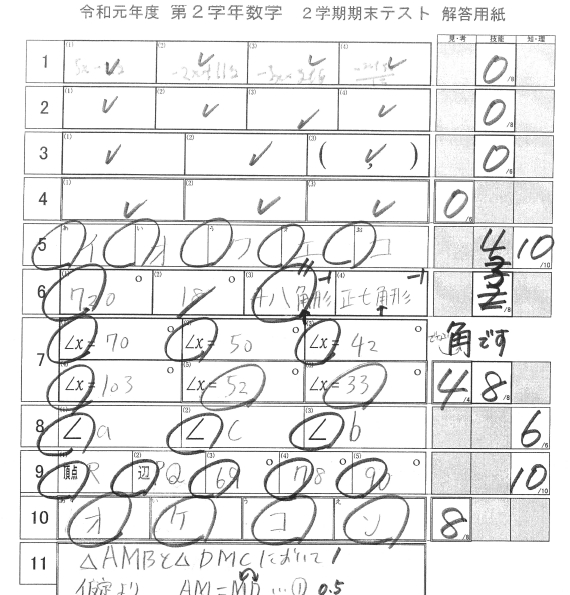 令和元年度 第2学年数学 2学期期末テスト 解答用紙
見・考 技能 知・理
1 (1) (2) (3) (4) 0 /8
2 (1) (2) (3) (4) 0 /8
3 (1) (2) (3) ( , ) 0 /6
4 (1) (2) (3) 0 /6
5 あ イ い オ う ウ え エ お コ 10 /10
6 (1) 720° (2) 18° (3) 十八角形 -1 (4) 正七角形 -1 /8
角です
7 ∠x= 70 ∠x= 50 ∠x= 42
∠x= 103 (5) ∠x= 52 ∠x= 33 4 /4 8 /8
8 ∠a (2) ∠c (3) ∠b 6 /6
9 点R (2) 辺PQ (3) 69° (4) 78° (5) 90° 10 /10
10 オ ケ コ ソ 8 /8
11 △AMBと△DMCにおいて 1
仮定より AM=MD …① 0.5